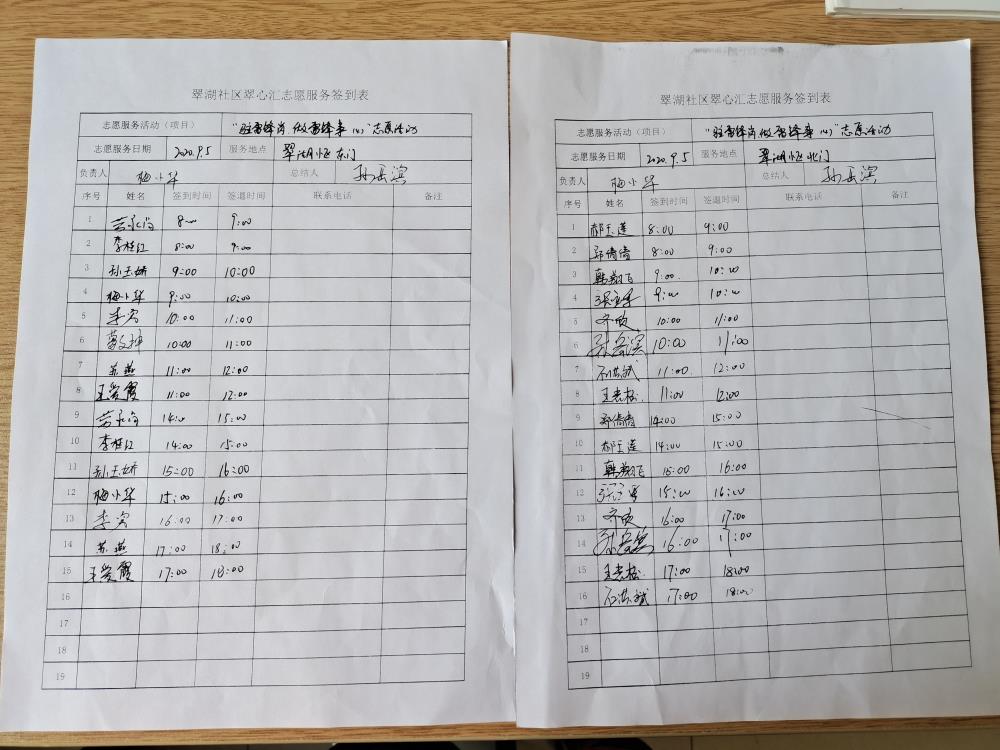 翠湖社区翠心汇志愿服务签到表
志愿服务活动（项目） "驻雷锋岗,做雷锋事 (4)"志愿活动
志愿服务日期 2020.9.5 服务地点 翠湖恒 东门
负责人 梅小华 总结人 孙岳滨
序号 姓名 签到时间 签退时间 联系电话 备注
1 8:00 9:00
2 李桂江 8:00 9:00
3 孙玉娇 9:00 10:00
4 梅小华 9:00 10:00
5 李宾 10:00 11:00
6 10:00 11:00
7 苏燕 11:00 12:00
8 王爱霞 11:00 12:00
9 14:00 15:00
10 李桂江 14:00 15:00
11 孙玉娇 15:00 16:00
12 梅小华 15:00 16:00
13 李宾 16:00 17:00
14 苏燕 17:00 18:00
15 王爱霞 17:00 18:00
16
17
18
19
翠湖社区翠心汇志愿服务签到表
志愿服务活动（项目） "驻雷锋岗,做雷锋事 (4)"志愿活动
志愿服务日期 2020.9.5 服务地点 翠湖恒 北门
负责人 梅小华 总结人 孙岳滨
序号 姓名 签到时间 签退时间 联系电话 备注
1 郝玉莲 8:00 9:00
2 郑倩倩 8:00 9:00
3 韩翔飞 9:00 10:00
4 9:00 10:00
5 齐欣 10:00 11:00
6 孙岳滨 10:00 11:00
7 石洪斌 11:00 12:00
8 王志松 11:00 12:00
9 郑倩倩 14:00 15:00
10 郝玉莲 14:00 15:00
11 韩翔飞 15:00 16:00
12 15:00 16:00
13 齐欣 16:00 17:00
14 孙岳滨 16:00 17:00
15 王志松 17:00 18:00
16 石洪斌 17:00 18:00
17
18
19